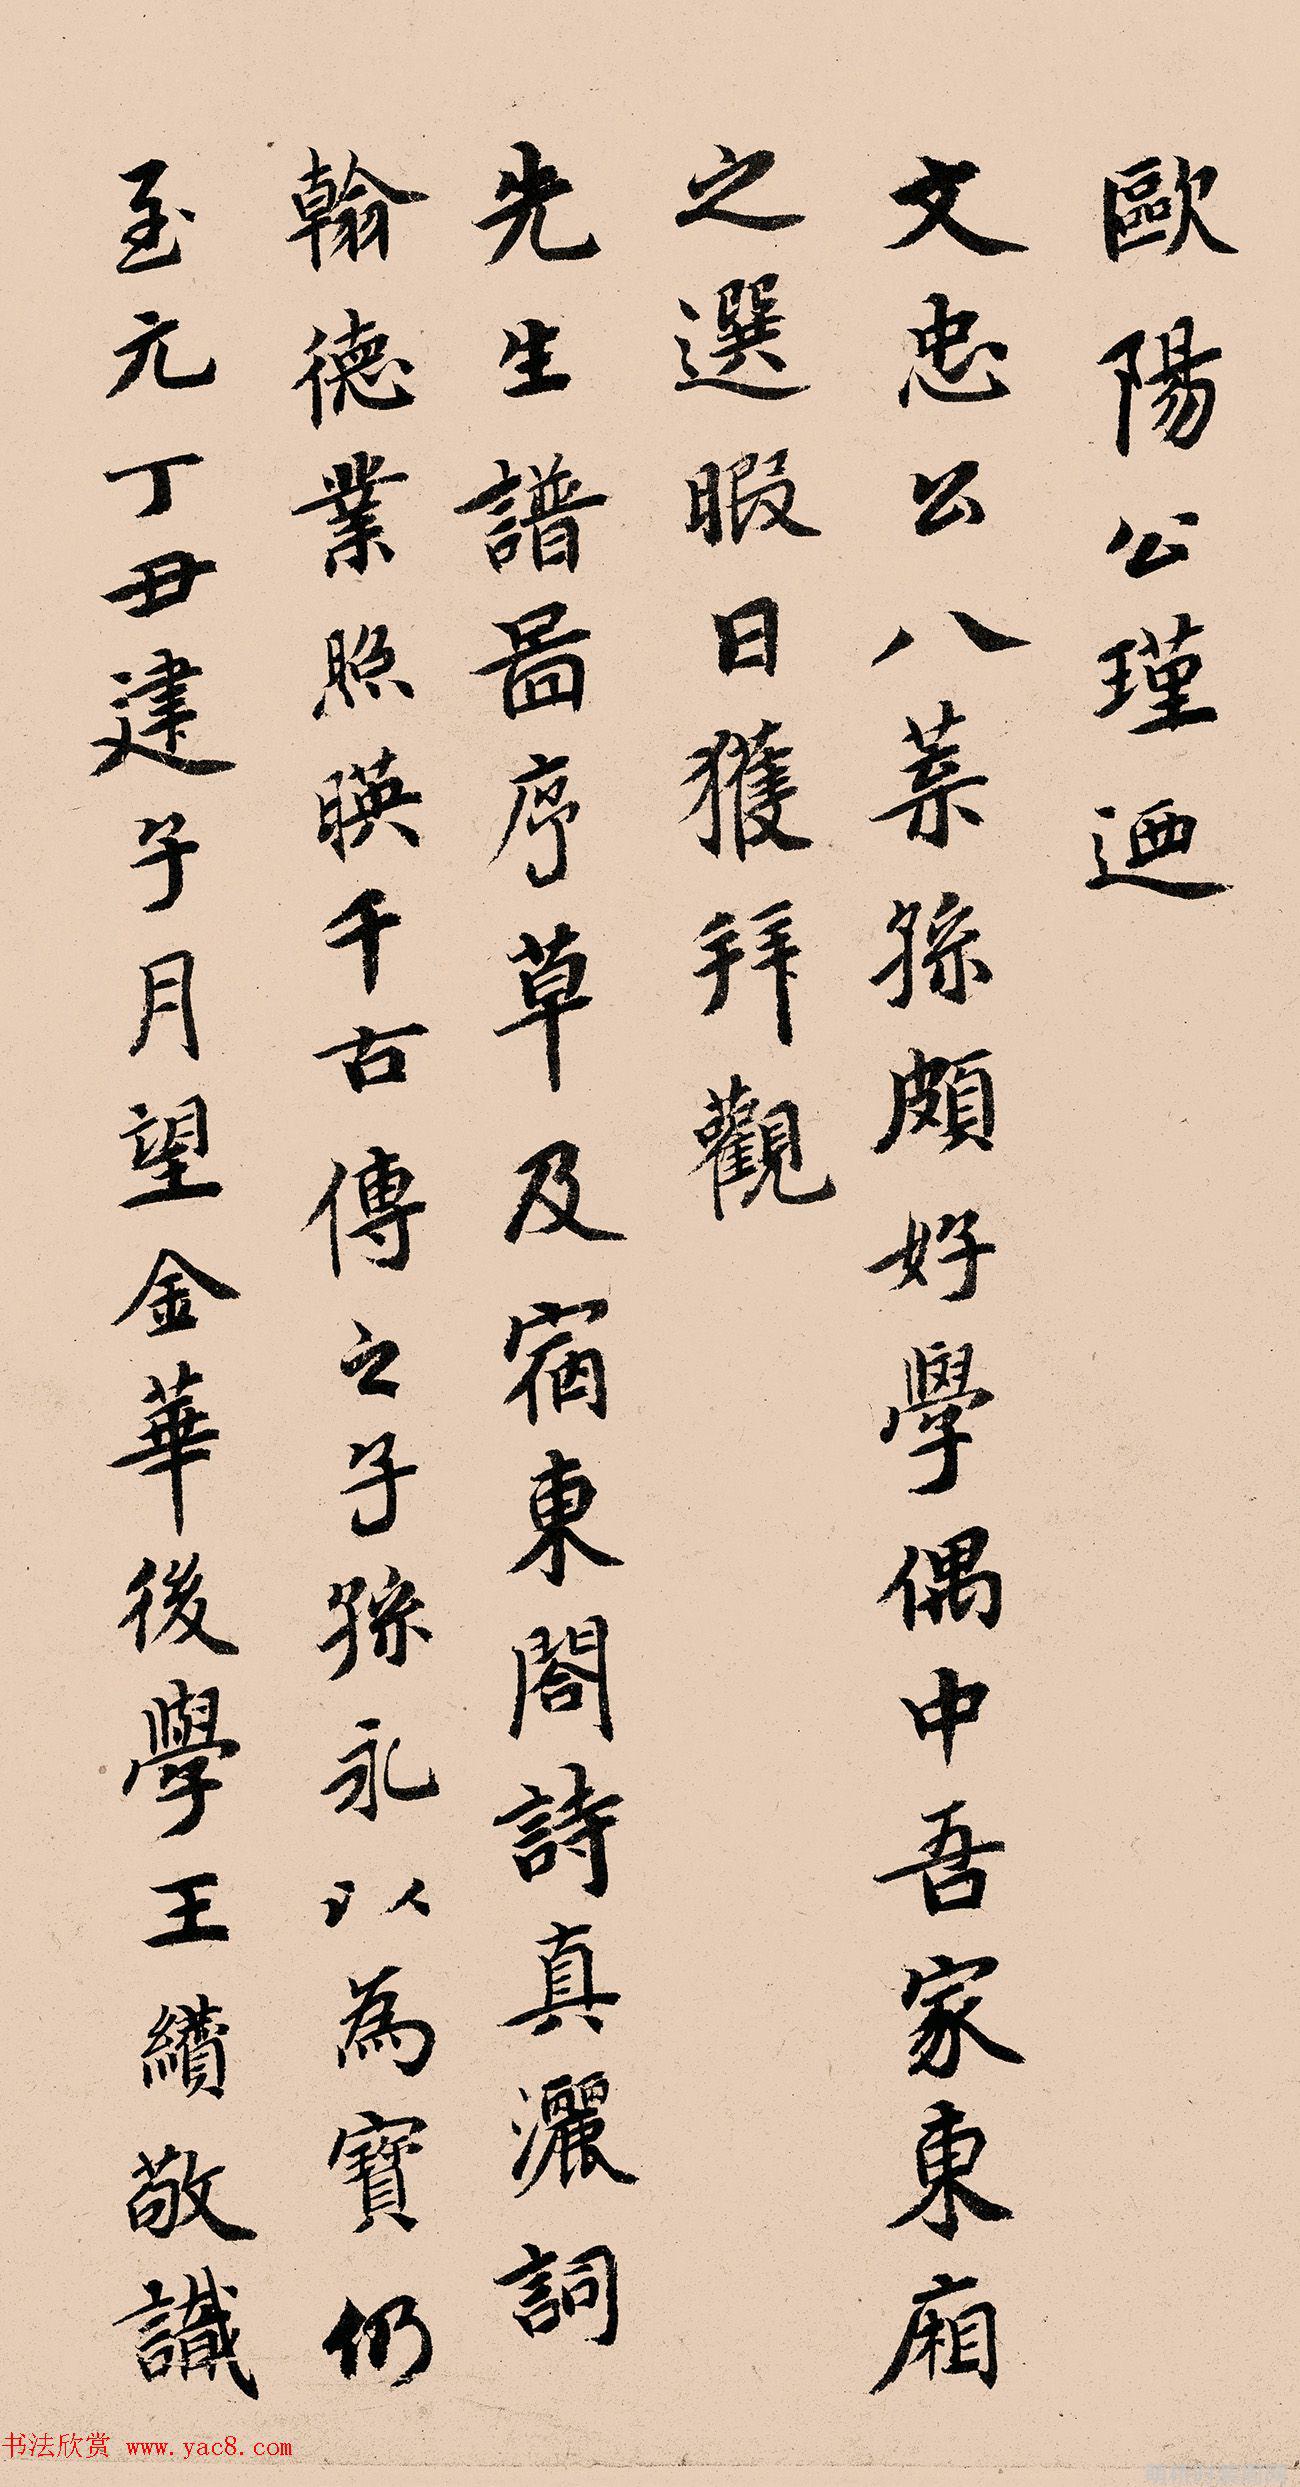 歐陽公瑾迺
文忠公八葉孫頗好學偶中吾家東廂
之選暇日獲拜觀
先生譜啚序草及宿東閣詩真灑詞
翰德業照暎千古傳之子孫永以為寶仍
至元丁丑建子月望金華後學王績敬識
书法欣赏 www.yac8.com